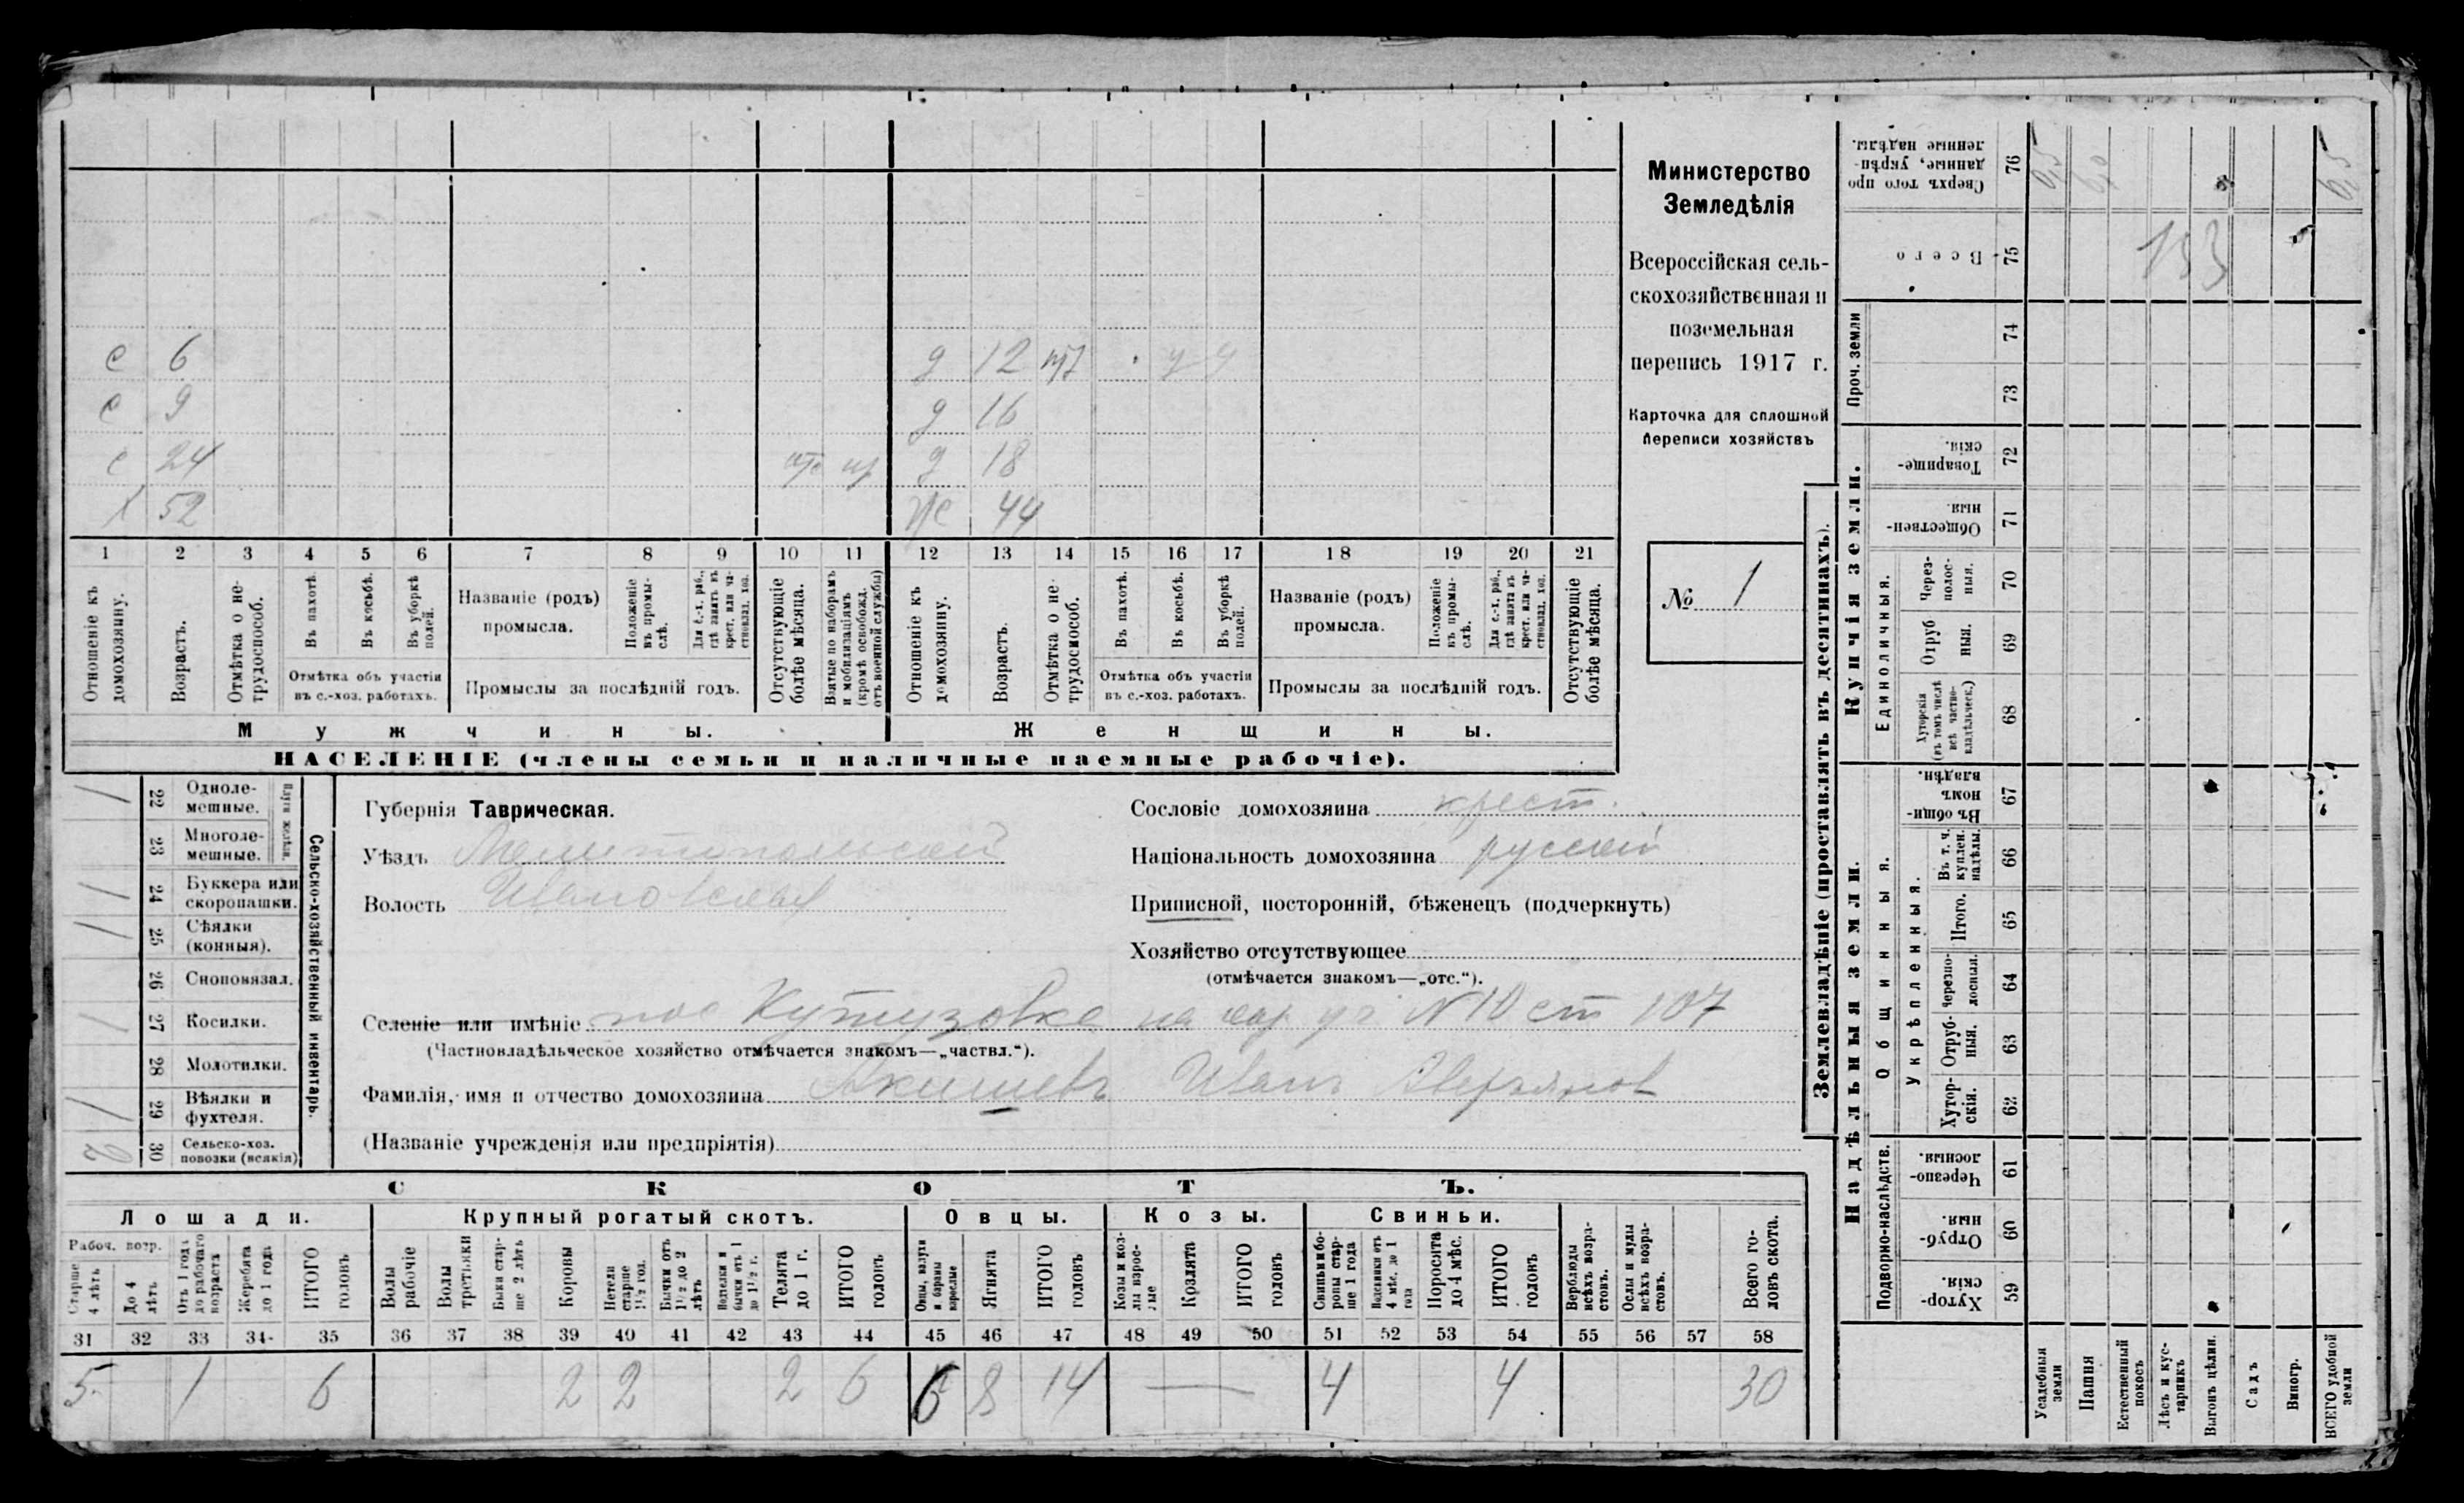 с 6 д 12
с 9 д 16
с 24 д 18
х 52 ж 44
1 2 3 4 5 6 7 8 9 10 11 12 13 14 15 16 17 18 19 20 21
Отношеніе къ домохозяину.
Возрастъ.
Отмѣтка о не-трудоспособ.
Въ пахотѣ.
Въ косьбѣ.
Въ уборкѣ полей.
Отмѣтка объ участіи
въ с.-хоз. работахъ.
Названіе (родъ)
промысла.
Положеніе въ промы-слѣ.
Для с.-х. раб., гдѣ занятъ въ крест. или ча-стновлад. хоз.
Промыслы за послѣдній годъ.
Отсутствующіе болѣе мѣсяца.
Взятые по наборамъ и мобилизаціямъ (кромѣ освобожд. отъ военной службы)
Отношеніе къ домохозяину.
Возрастъ.
Отмѣтка о не-трудоспособ.
Въ пахотѣ.
Въ косьбѣ.
Въ уборкѣ полей.
Отмѣтка объ участіи
въ с.-хоз. работахъ.
Названіе (родъ)
промысла.
Положеніе въ промы-слѣ.
Для с.-х. раб., гдѣ занята въ крест. или ча-стновлад. хоз.
Промыслы за послѣдній годъ.
Отсутствующіе болѣе мѣсяца.
Мужчины.
Женщины.
НАСЕЛЕНІЕ (члены семьи и наличные наемные рабочіе).
Министерство
Земледѣлія
Всероссійская сель-
скохозяйственная и
поземельная
перепись 1917 г.
Карточка для сплошной
переписи хозяйствъ
№ 1
22 Одноле-
мешные.
23 Многоле-
мешные.
Плуги желѣзн.
24 Буккера или
скоропашки.
25 Сѣялки
(конныя).
26 Сноповязал.
27 Косилки.
28 Молотилки.
29 Вѣялки и
фухтеля.
30 Сельско-хоз.
повозки (всякія)
Сельско-хозяйственный инвентарь.
Губернія Таврическая.
Уѣздъ Мелитопольскій
Волость Ивановская
Сословіе домохозяина крест.
Національность домохозяина русскій
Приписной, посторонній, бѣженецъ (подчеркнуть)
Хозяйство отсутствующее
(отмѣчается знакомъ—„отс.“).
Селеніе или имѣніе пос Кутузовка на уч № 10 ст 107
(Частновладѣльческое хозяйство отмѣчается знакомъ—„частвл.“).
Фамилія, имя и отчество домохозяина Акишевъ Иванъ Аверьянов
(Названіе учрежденія или предпріятія)
СКОТЪ.
Лошади. Крупный рогатый скотъ. Овцы. Козы. Свиньи.
Рабоч. возр.
Старше 4 лѣтъ
До 4 лѣтъ
Отъ 1 года до рабочаго возраста
Жеребята до 1 года
ИТОГО головъ
Волы рабочіе
Волы третьяки
Быки стар-ше 2 лѣтъ
Коровы
Нетели старше 1½ год.
Бычки отъ 1½ до 2 лѣтъ
Подтелки и бычки отъ 1 до 1½ г.
Телята до 1 г.
ИТОГО головъ
Овцы, валухи и бараны взрослые
Ягнята
ИТОГО головъ
Козы и коз-лы взрос-лые
Козлята
ИТОГО головъ
Свиньи и бо-ровы стар-ше 1 года
Подсвинки отъ 4 мѣс. до 1 года
Поросята до 4 мѣс.
ИТОГО головъ
Верблюды всѣхъ возра-стовъ.
Ослы и мулы всѣхъ возра-стовъ.
Всего го-ловъ скота.
31 32 33 34 35 36 37 38 39 40 41 42 43 44 45 46 47 48 49 50 51 52 53 54 55 56 57 58
5 1 6 2 2 2 6 6 8 14 — 4 4 30
Землевладѣніе (проставлять въ десятинахъ).
Сверхъ того про-данные, укрѣп-ленные надѣлы. 76 0,5
Всего 75 193
Проч. земли 74 73
Купчія земли.
Товарище-скія. 72
Обществен-ныя. 71
Единоличныя.
Через-полос-ныя. 70
Отруб-ныя. 69
Хуторскія (въ томъ числѣ всѣ частно-владѣльческ.) 68
Надѣльныя земли.
Общинныя.
Въ общи-номъ владѣн. 67
Укрѣпленныя.
Въ т. ч. куплен. надѣлы. 66
Итого. 65
Черезпо-лосныя. 64
Отруб-ныя. 63
Хутор-скія. 62
Подворно-наслѣдств.
Черезпо-лосныя. 61
Отруб-ныя. 60
Хутор-скія. 59
Усадебныя земли
Пашня
Естественный покосъ
Лѣсъ и кус-тарникъ
Выгонъ цѣлин.
Садъ
Виногр.
ВСЕГО удобной земли